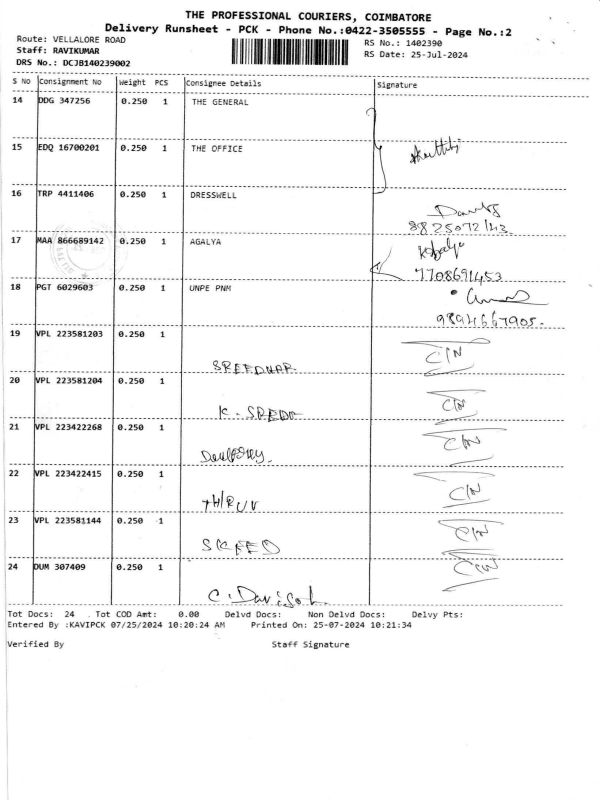 THE PROFESSIONAL COURIERS, COIMBATORE
Delivery Runsheet - PCK - Phone No.:0422-3505555 - Page No.:2
Route: VELLALORE ROAD RS No.: 1402390
Staff: RAVIKUMAR RS Date: 25-Jul-2024
DRS No.: DCJB140239002
S No Consignment No Weight PCS Consignee Details Signature
14 DDG 347256 0.250 1 THE GENERAL
15 EDQ 16700201 0.250 1 THE OFFICE
16 TRP 4411406 0.250 1 DRESSWELL
8825072143
17 MAA 866689142 0.250 1 AGALYA
7708691453
18 PGT 6029603 0.250 1 UNPE PNM
9894667905.
19 VPL 223581203 0.250 1
SREEDHAR CIN
20 VPL 223581204 0.250 1
K. SREDE CIN
21 VPL 223422268 0.250 1
CIN
22 VPL 223422415 0.250 1
THIRUV CIN
23 VPL 223581144 0.250 1
SREED CIN
24 DUM 307409 0.250 1
C. Davison CIN
Tot Docs: 24 Tot COD Amt: 0.00 Delvd Docs: Non Delvd Docs: Delvy Pts:
Entered By :KAVIPCK 07/25/2024 10:20:24 AM Printed On: 25-07-2024 10:21:34
Verified By Staff Signature